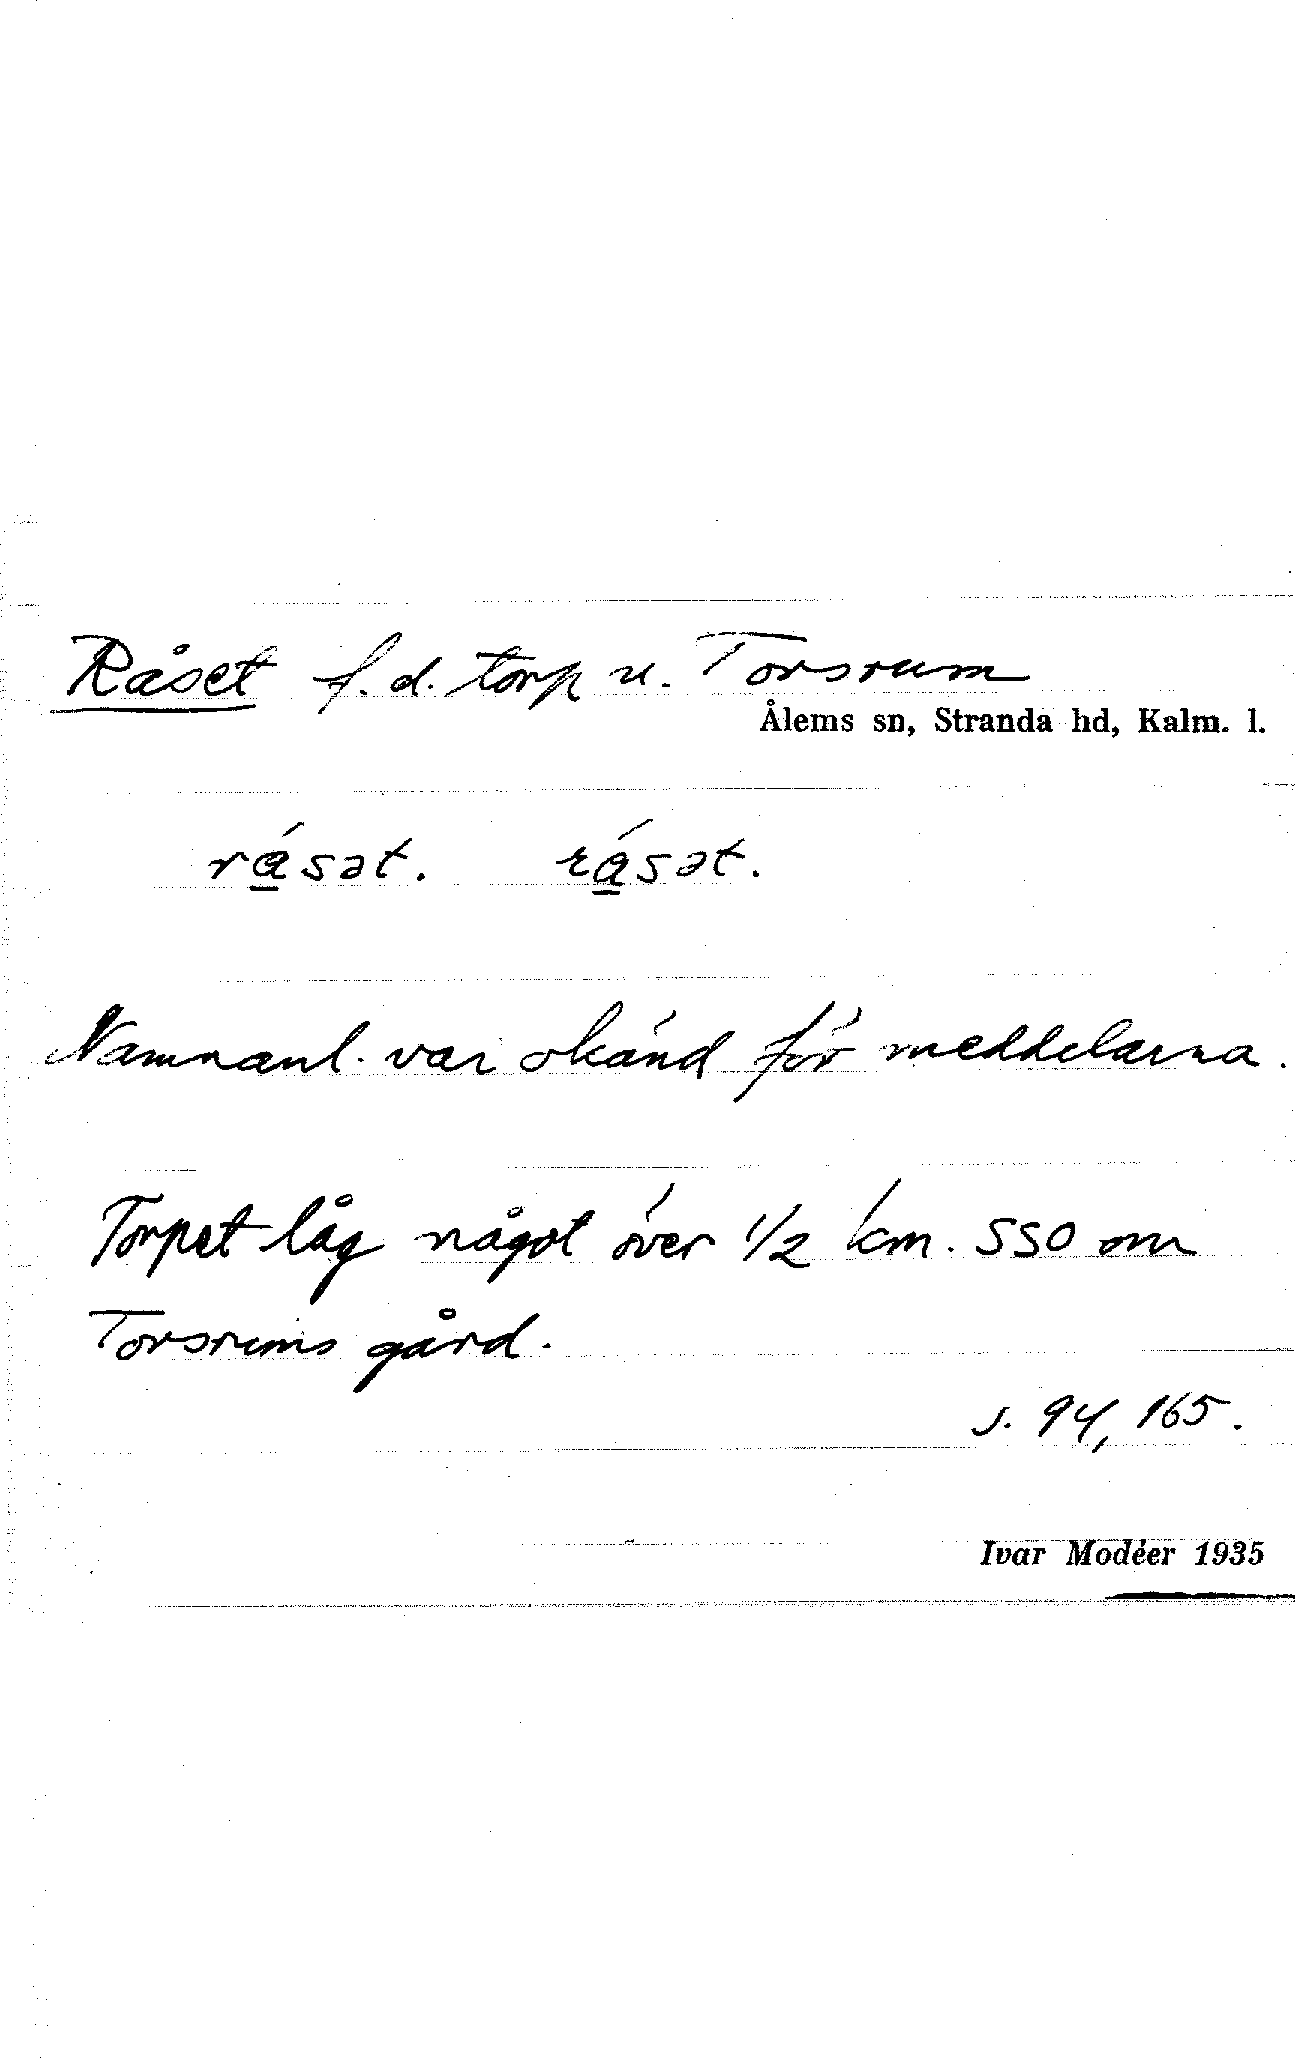 Råset f.d. torp u. Torsrum
Ålems sn, Stranda hd, Kalm. l.
rásət. rásət.
Namnanl. var okänd för meddelarna.
Torpet låg något över 1/2 km. SSO om
Torsrums gård.
s. 94, 165.
Ivar Modéer 1935